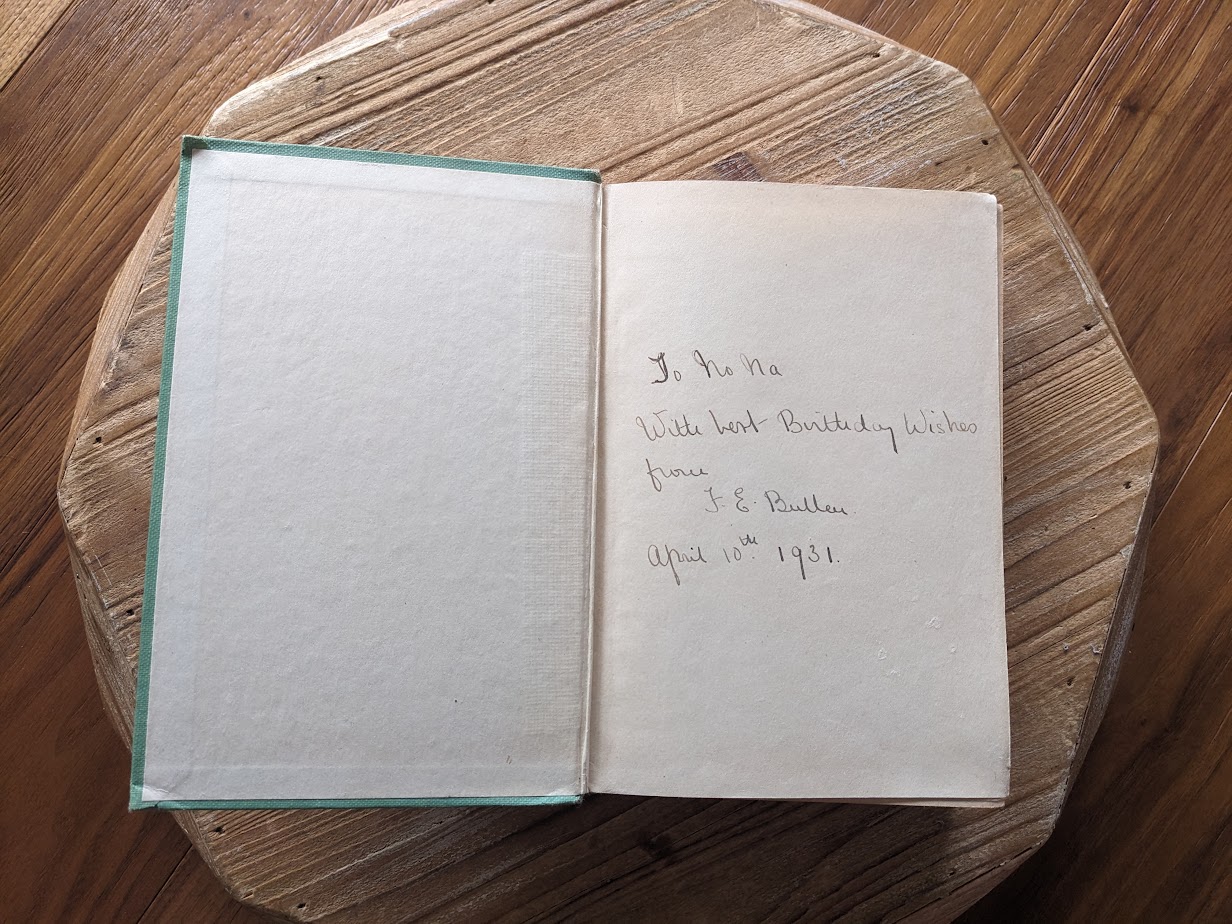 To No Na
With best Birthday Wishes
from
F. E. Bullen.
April 10th. 1931.